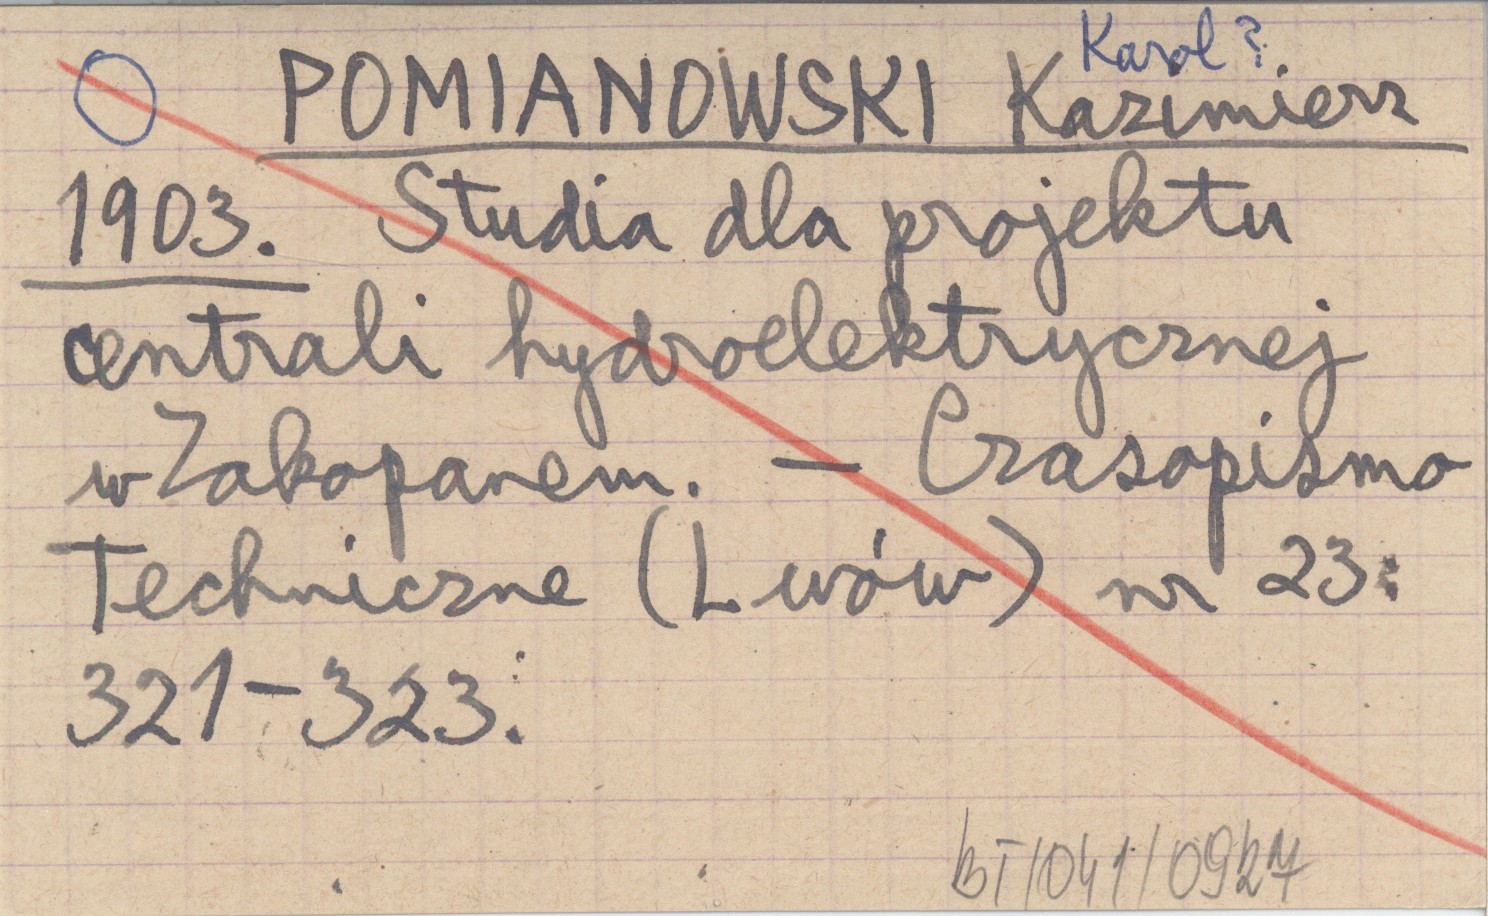 Karol?
POMIANOWSKI Kazimierz
1903. Studia dla projektu
centrali hydroelektrycznej
w Zakopanem. — Czasopismo
Techniczne (Lwów) nr 23:
321-323.
BT/041/0927